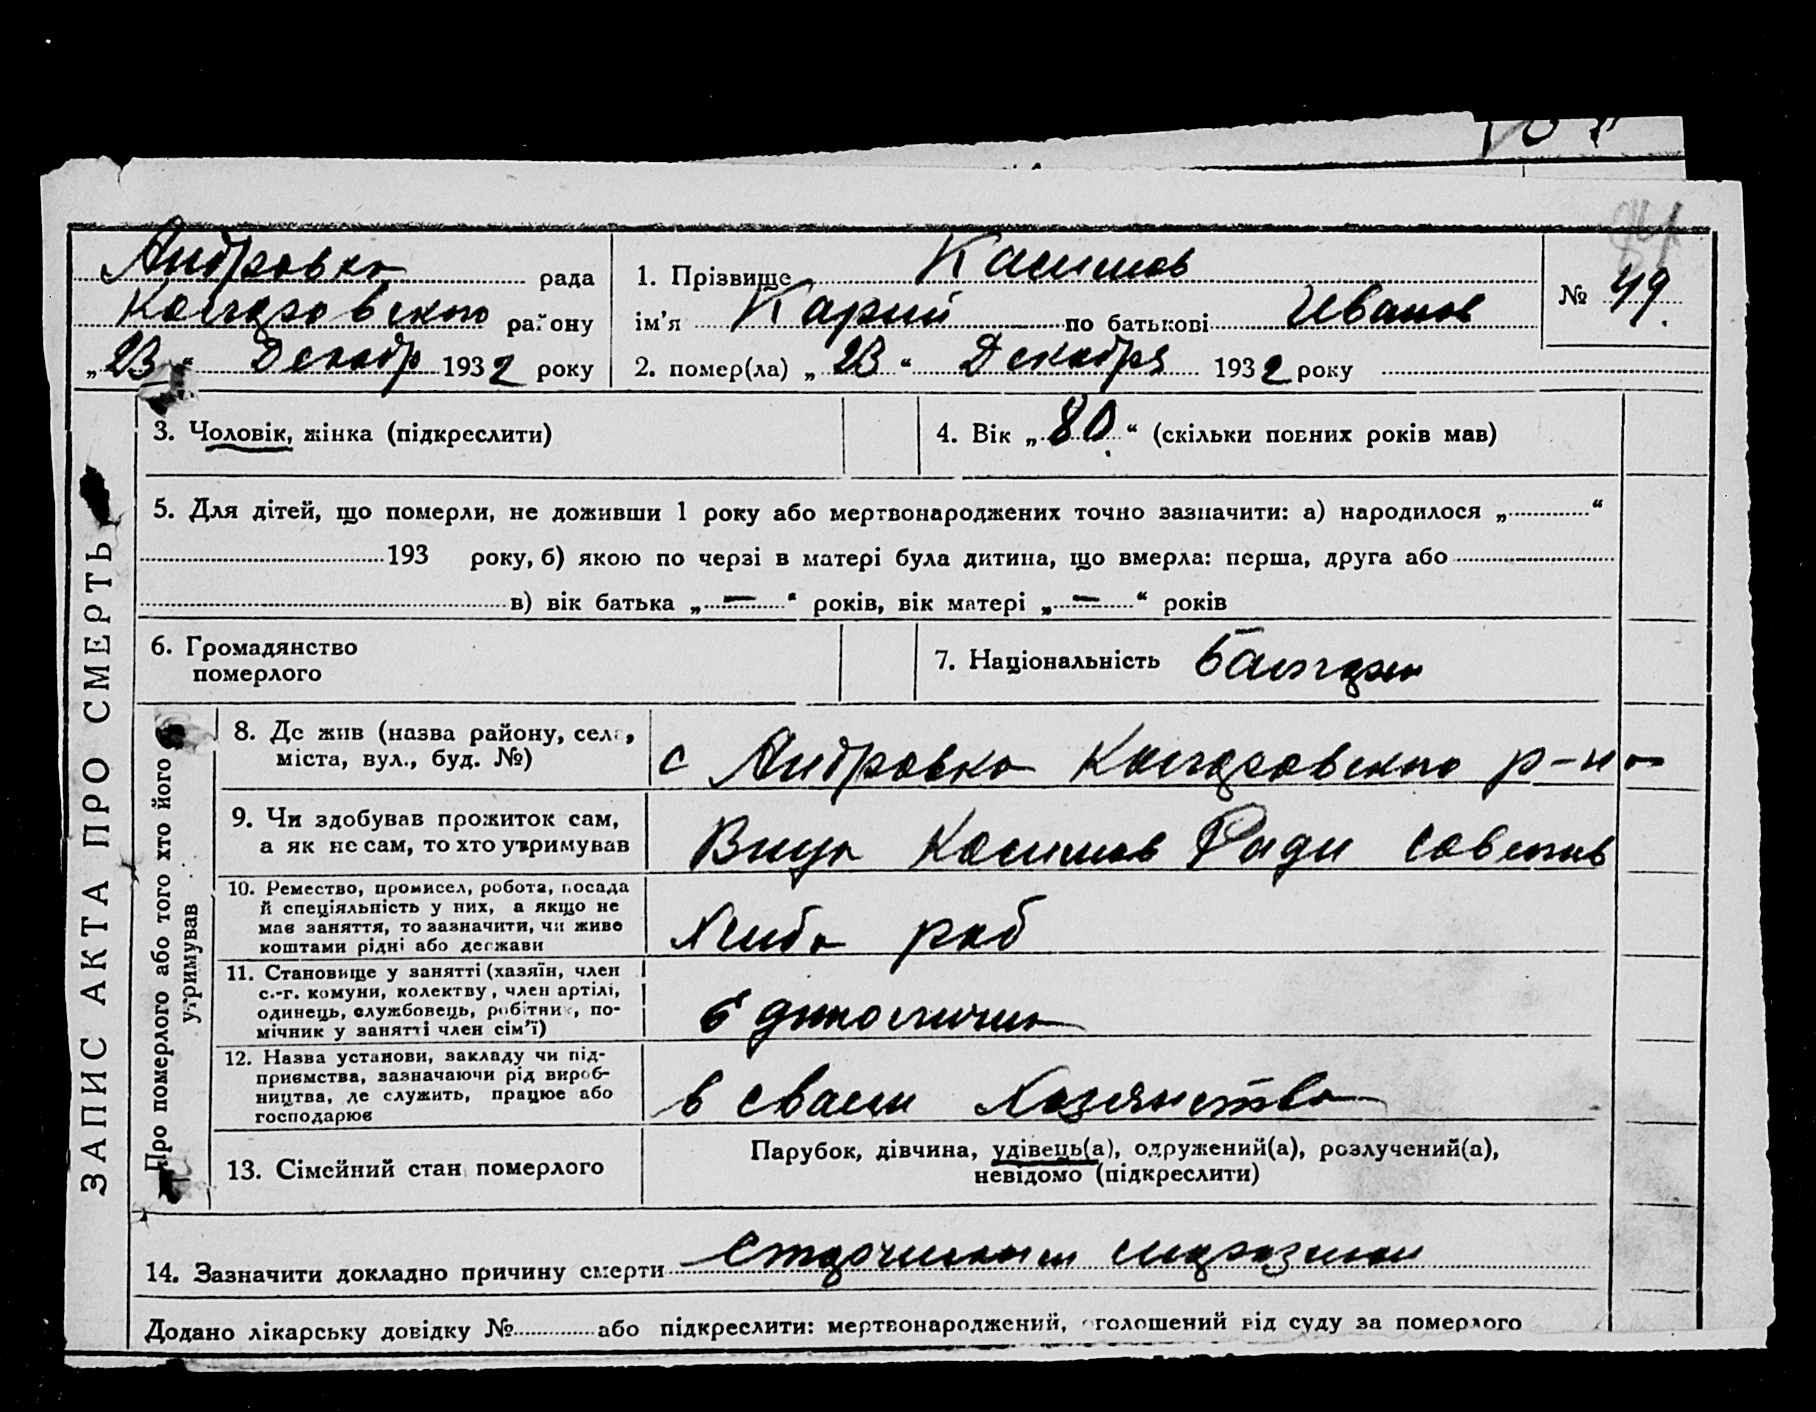 Андровка рада
Колларовского району
„23“ Декабр 1932 року
1. Прізвище Касимов
ім’я Карпий по батькові Иванов
2. помер(ла) „23“ Декабря 1932 року
№ 49.
ЗАПИС АКТА ПРО СМЕРТЬ
3. Чоловік, жінка (підкреслити)
4. Вік „80“ (скільки повних років мав)
5. Для дітей, що померли, не доживши 1 року або мертвонароджених точно зазначити: а) народилося „ “
193 року, б) якою по черзі в матері була дитина, що вмерла: перша, друга або
в) вік батька „—“ років, вік матері „—“ років
6. Громадянство
померлого
7. Національність Болгари
Про померлого або того хто його
утримував
8. Де жив (назва району, села,
міста, вул., буд. №)
с Андровка Колларовского р-на
9. Чи здобував прожиток сам,
а як не сам, то хто утримував
Внук Касимов
10. Ремество, промисел, робота, посада
й спеціяльність у них, а якщо не
мав заняття, то зазначити, чи живе
коштами рідні або держави
Хлеба роб
11. Становище у занятті (хазяїн, член
с.-г. комуни, колектву, член артілі,
одинець, службовець, робітник, по-
мічник у занятті член сім’ї)
Единоличник
12. Назва установи, закладу чи під-
приємства, зазначаючи рід вироб-
ництва, де служить, працює або
господарює
в своем Хозяйства
13. Сімейний стан померлого
Парубок, дівчина, удівець(а), одружений(а), розлучений(а),
невідомо (підкреслити)
14. Зазначити докладно причину смерти старческим маразмом
Додано лікарську довідку № або підкреслити: мертвонароджений, оголошений від суду за померлого